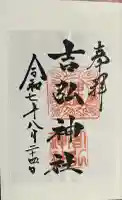 奉拝
吉弘神社
令和七年八月二十四日